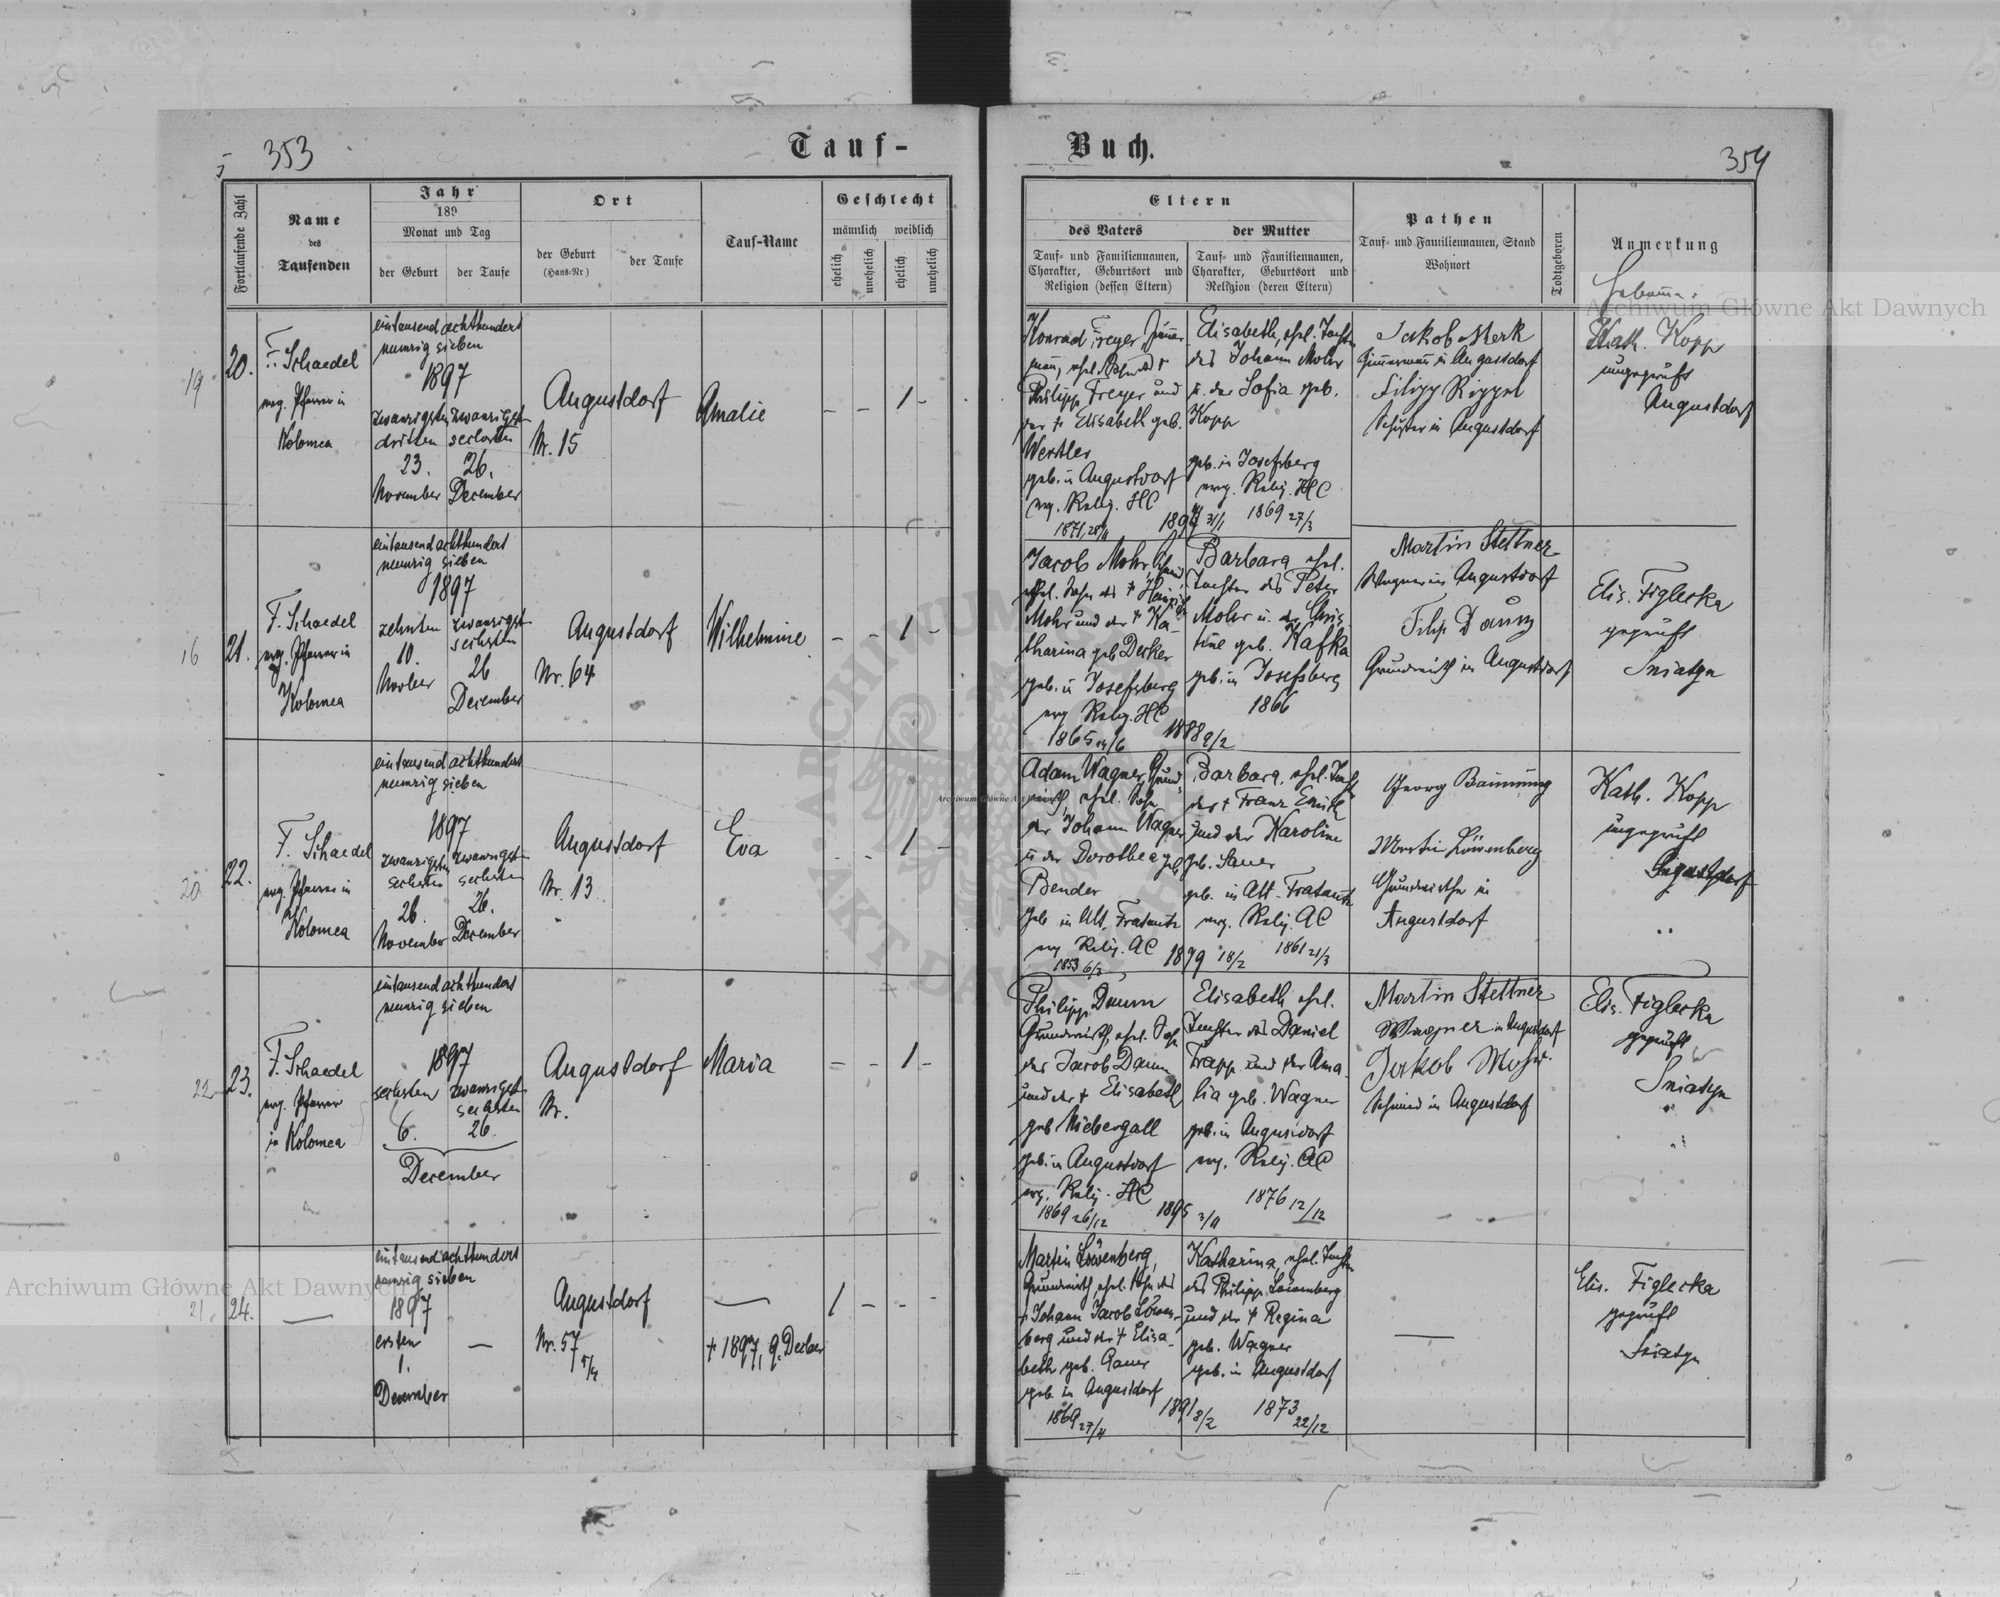 353
Tauf-
Fortlaufende Zahl
Name
des
Taufenden
Jahr
189
Monat und Tag
der Geburt
der Taufe
Ort
der Geburt
(Haus-Nr)
der Taufe
Tauf-Name
Geschlecht
männlich
weiblich
ehelich
unehelich
ehelich
unehelich
19
20.
F. Schaedel
evg. Pfarrer in
Kolomea
eintausend achthundert
neunzig sieben
1897
zwanzigsten
dritten
23.
November
zwanzigst
sechsten
26.
December
Augustdorf
Nr. 15
Amalie
– – 1 –
16
21.
F. Schaedel
evg. Pfarrer in
Kolomea
eintausend achthundert
neunzig sieben
1897
zehnten
10.
Novber
zwanzigst
sechsten
26
December
Augustdorf
Nr. 64
Wilhelmine
– – 1 –
20
22.
F. Schaedel
evg. Pfarrer in
Kolomea
eintausend achthundert
neunzig sieben
1897
zwanzigsten
sechsten
26.
November
zwanzigst
sechsten
26.
December
Augustdorf
Nr. 13
Eva
– – 1 –
22
23.
F. Schaedel
evg. Pfarrer
in Kolomea
eintausend achthundert
neunzig sieben
1897
sechsten
6.
zwanzigst
sechsten
26
December
Augustdorf
Nr.
Maria
– – 1 –
21.
24.
—
eintausend achthundert
neunzig sieben
1897
ersten
1.
December
—
Augustdorf
Nr. 57
—
† 1897, 9. Decber
1 – – –
Buch.
354
Eltern
des Vaters
der Mutter
Tauf- und Familiennamen,
Charakter, Geburtsort und
Religion (dessen Eltern)
Tauf- und Familiennamen,
Charakter, Geburtsort und
Religion (deren Eltern)
Pathen
Tauf- und Familiennamen, Stand
Wohnort
Todtgeboren
Anmerkung
Konrad Freyer Zimmer
mann, ehel. Sohn des
Philipp Freyer und
der † Elisabeth geb.
Werstler
geb. in Augustdorf
evg. Relig. HC
1871 28/4
Elisabeth, ehel. Tochter
des Johann Mohr
u. der Sofia geb.
Kopp
geb. in Josefsberg
evg. Relig. HC
31/1 1869 27/3
Jakob Merk
Zimmermann in Augustdorf
Filipp Rippel
Schuster in Augustdorf
Kath. Kopp
ungeprüft
Augustdorf
Jacob Mohr, Schmid
ehel. Sohn des † Heinrich
Mohr und der † Ka-
tharina geb. Decker
geb. in Josefsberg
evg Relig. HC
1865 14/6
Barbara ehel.
Tochter des Peter
Mohr u. der Chris
tine geb. Kafka
geb. in Josefsberg
1866
1888 9/2
Martin Stettner
Wagner in Augustdorf
Filip Daum
Grundwirth in Augustdorf
Elis. Figlecka
geprüft
Sniatyn
Adam Wagner, Grund
wirth, ehel. Sohn
der Johann Wagner
u der Dorothea geb.
Bender
geb in Alt. Fratautz
evg Relig. AC
1853 6/3
Barbara, ehel. Tocht
des † Franz
und der Karoline
geb. Sauer
geb. in Alt-Fratautz
evg. Relig. AC
1879 18/2 1861 21/3
Georg
Martin Löwenberg
Grundwirthe in
Augustdorf
Kath. Kopp
ungeprüft
Augustdorf
Philipp Daum
Grundwirth, ehel. Sohn
des Jacob Daum
und der † Elisabeth
geb Niebergall
geb. in Augustdorf
evg. Relig. HC
1869 26/12
Elisabeth ehel.
Tochter des Daniel
Trapp und der Ama
lia geb. Wagner
geb. in Augustdorf
evg. Relig. AC
1895 1876 12/12
Martin Stettner
Wagner in Augustdorf
Jakob Mohr
Schmied in Augustdorf
Elis. Figlecka
geprüft
Sniatyn
Martin Löwenberg,
Grundwirth, ehel. Sohn des
† Johann Jacob Löwen-
berg und der † Elisa-
beth geb. Gauer
geb. in Augustdorf
1869 27/4
Katharina, ehel. Tochter
des Philipp Löwenberg
und der † Regina
geb. Wagner
geb. in Augustdorf
1891 8/2 1873 22/12
—
Elis. Figlecka
geprüft
Sniatyn
Archiwum Główne Akt Dawnych
Archiwum Główne Akt Dawnych
ARCHIWUM
AKT DAWNYCH